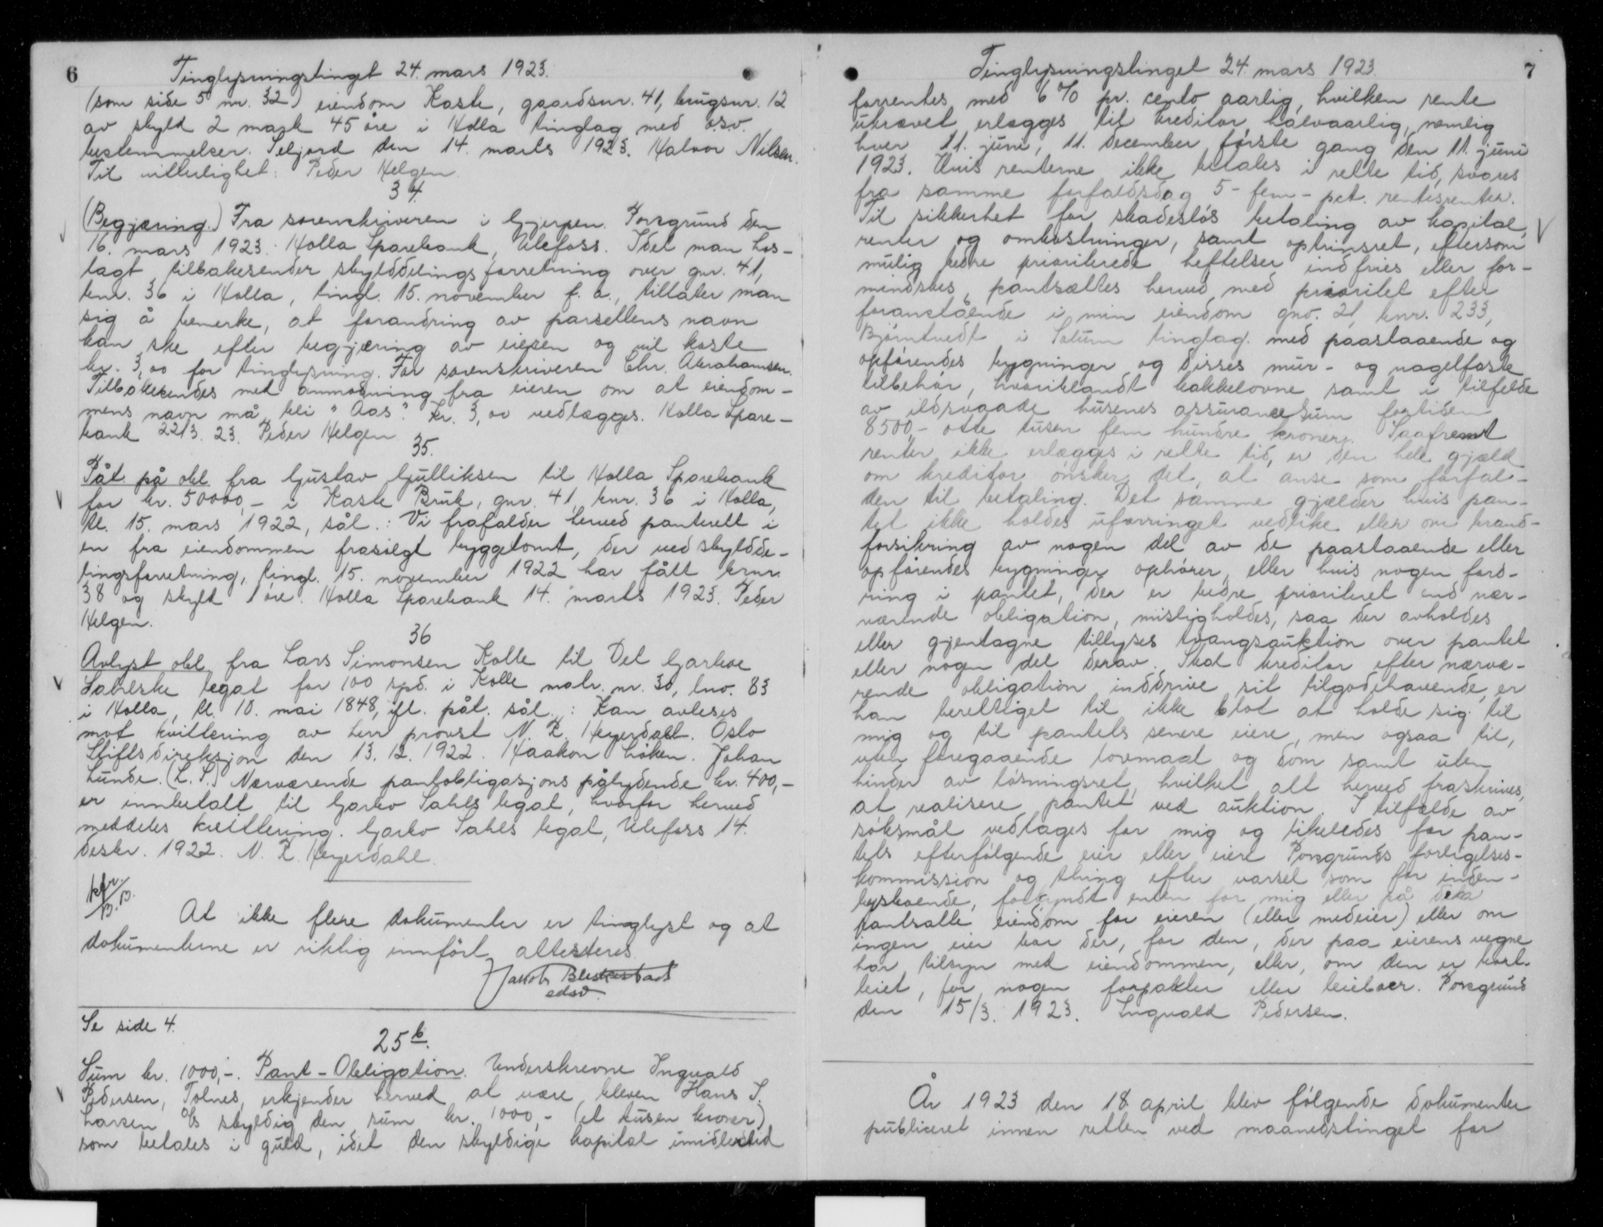 6
Tinglysningstinget 24. mars 1923.
(som side 5 nr. 32) eiendom Kaste, gaardsnr. 41, brugsnr. 12
av skyld 2 mark 45 øre i Holla tinglag med osv.
bestemmelser. Seljord den 14. marts 1923. Halvor Nilsen.
Til vitterlighet: Peder Helgen.
34.
(Begjæring.) Fra sorenskriveren i Gjerpen. Porsgrund den
16. mars 1923. Holla Sparebank, Ulefoss. Idet man hos-
lagt tilbakesender skylddelingsforretning over gnr. 41,
bnr. 36 i Holla, tingl. 15. november f. a., tillater man
sig å bemerke, at forandring av parsellens navn
kan ske efter begjæring av eieren og vil koste
kr. 3,00 for tinglysning. For sorenskriveren Chr. Abrahamsen.
Tilbakesendes med anmodning fra eieren om at eiendom-
mens navn må bli "Aas". Kr. 3,00 vedlægges. Holla Spare-
bank 22/3. 23. Peder Helgen
35.
Påt. på obl. fra Gustav Gulliksen til Holla Sparebank
for kr. 50000,- i Kaste Bruk, gnr. 41, bnr. 36 i Holla,
tl. 15. mars 1922, sål.: Vi frafalder herved panterett i
en fra eiendommen frasolgt byggetomt, der ved skyldde-
lingsforretning, tingl. 15. november 1922 har fått brnr.
38 og skyld 1 øre. Holla Sparebank 14. marts 1923. Peder
Helgen.
36
Avlyst obl. fra Lars Simonsen Kolle til Det Garboe
Sahlske legat for 100 spd. i Kolle matr. nr. 30, lnr. 83
i Holla, tl. 10. mai 1848, ifl. påt. sål.: Kan avleses
mot kvittering av herr provst N. R. Heyerdahl. Oslo
Stiftsdireksjon den 13. 12. 1922. Haakon Löken. Johan
Lunde. (L. S.) Nærværende pantobligasjons pålydende kr. 400,-
er innbetalt til Garbo Sahls legat, hvorfor herved
meddeles kvittering. Garbo Sahls legat, Ulefoss 14.
desbr. 1922. N. R. Heyerdahl.
kfr.
B.B.
At ikke flere dokumenter er tinglyst og at
dokumenterne er riktig innført attesteres
Jacob
edsv.
Se side 4.
25 b.
Sum kr. 1000,-. Pant-Obligation. Underskrevne Ingvald
Pedersen, Tolnes, erkjender herved at være bleven Hans I.
Larsen A/S skyldig den sum kr. 1000,- (et tusen kroner)
som betales i guld, idet den skyldige kapital imidlertid
Tinglysningstinget 24. mars 1923.
7
forrentes med 6 % pr. cento aarlig, hvilken rente
utkrævet erlægges til kreditor halvaarlig, nemlig
hver 11. juni, 11. december, første gang den 11. juni
1923. Hvis renterne ikke betales i rette tid, svares
fra samme forfaldsdag 5 - fem - pct. rentesrenter.
Til sikkerhet for skadesløs betaling av kapital,
renter og omkostninger, samt optrinsret, eftersom
mulig bedre prioriterede heftelser indfries eller for-
mindskes, pantsættes herved med prioritet efter
foranstående i min eiendom gno. 21, bnr. 233,
Bjørntvedt i Solum tinglag med paastaaende og
opførendes bygninger og disses mur- og nagelfaste
tilbehør, hvoriblandt kakkelovne samt i tilfælde
av ildsvaade husenes assurancesum fortiden
8500,- otte tusen fem hundre kroner. Saafremt
renter ikke erlægges i rette tid, er den hele gjæld
om kreditor ønsker det, at anse som forfal-
den til betaling. Det samme gjælder hvis pan-
tet ikke holdes uforringet vedlike eller om brand-
forsikring av nogen del av de paastaaende eller
opførendes bygninger ophører, eller hvis nogen ford-
ring i pantet, der er bedre prioriteret end nær-
værende obligation, misligholdes, saa der avholdes
eller gjentagne tillyses tvangsauktion over pantet
eller nogen del derav. Skal kreditor efter nærvæ-
rende obligation inddrive sit tilgodehavende, er
han berettiget til ikke blot at holde sig til
mig og til pantets senere eiere, men ogsaa til,
uten foregaaende lovmaal og dom samt uten
hinder av løsningsret, hvilket alt herved fraskrives,
at realisere pantet ved auktion. I tilfælde av
søksmål vedtages for mig og likeledes for pan-
tets efterfølgende eier eller eiere Porsgrunds forligelses-
kommission og thing efter varsel som for inden-
bysboende, forkyndt enten for mig eller på den
pantsatte eiendom for eieren (eller medeier) eller om
ingen eier bor der, for den, der paa eierens vegne
har tilsyn med eiendommen, eller, om den er bort-
leiet, for nogen forpakter eller leieboer. Porsgrund
den 15/3. 1923. Ingvald Pedersen.
År 1923 den 18 april blev følgende dokumenter
publiceret innen retten ved maanedstinget for